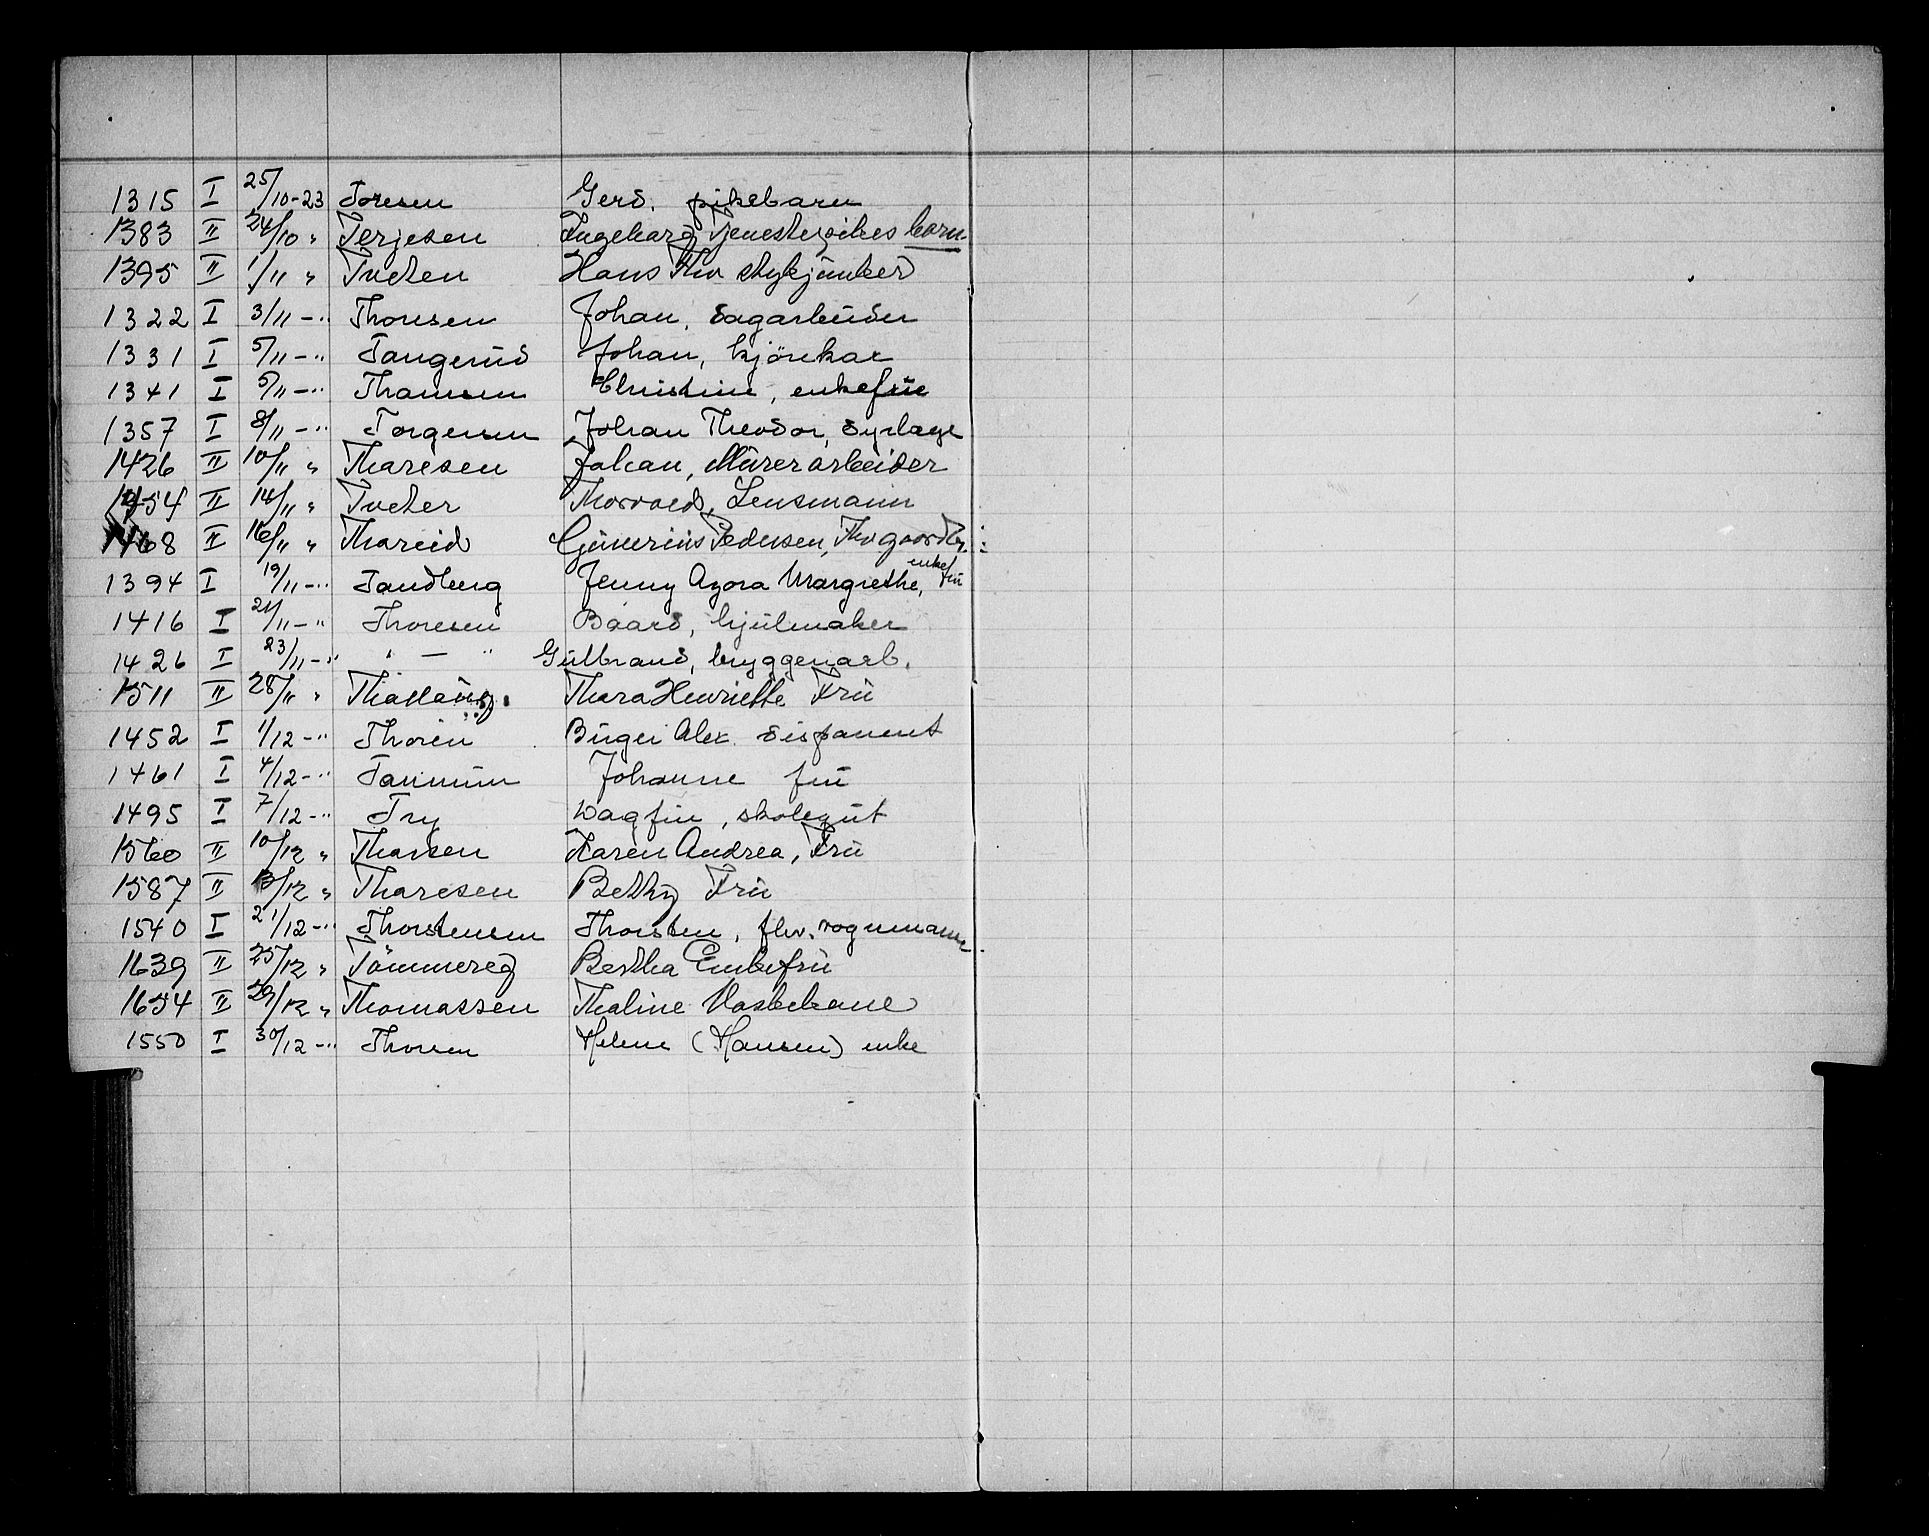 1315 I 25/10-23 Toresen Gerd. pikebarn
1383 II 24/10 " Terjesen Ingeborg Tjenestepikes barn
1395 II 1/11 " Tveten Hans Thv stykjunker
1322 I 3/11 - " Thoresen Johan, sagarbeider
1331 I 5/11 - " Tangerud Johan, kjörekar
1341 I 5/11 - " Thamsen Christine, enkefru
1357 I 8/11 - " Torgersen Johan Theodor, dyrlæge
1426 II 10/11 " Thoresen Johan, Murerarbeider
1454 II 14/11 " Tveter Thorvald, Lensmann
1468 II 16/11 " Thoreid Gunerius Pedersen,
1394 I 19/11 - " Tandberg Jenny Agora Margrethe, enkefru
1416 I 21/11 - " Thoresen Baard, hjulmaker
1426 I 23/11 - " " — " Gulbrand, bryggeriarb.
1511 II 28/11 " Thallaug. Thora Henriette Fru
1452 I 1/12 - " Thorén Birger Alex. disponent
1461 I 4/12 - " Tanum Johanne fru
1495 I 7/12 - " Try Dagfin, skolegut
1560 II 10/12 " Thorsen Karen Andrea, Fru
1587 II 13/12 " Thoresen Bethy Fru
1540 I 21/12 - " Thorstensen Thorsten, fhv. vognmann
1639 II 25/12 " Tömmereg Bertha Enkefru
1654 II 29/12 " Thomassen Thaline Vaskekone
1550 I 30/12 - " Thorsen Helene (Hansen) enke